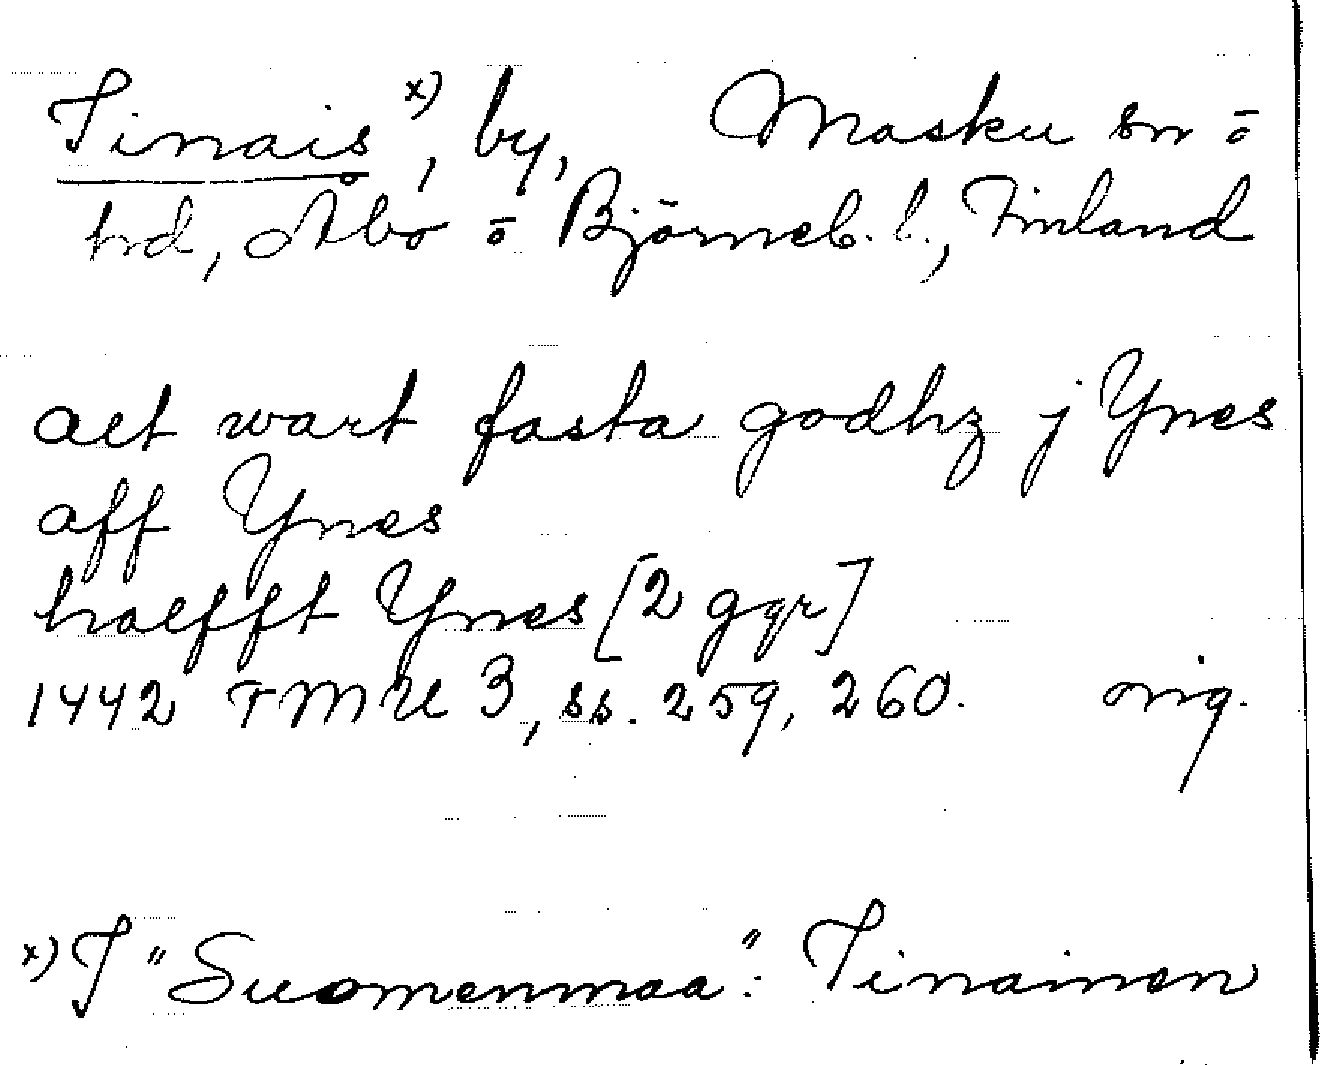 Iinais ˣ⁾, by, Masku sn ō
hd, Åbo ō Björneb. l., Finland
aet wart fasta godhz j Ynes
aff Ynes
haefft Ynes [2 ggr]
1442 FMU 3, ss. 259, 260. orig.
ˣ⁾ I "Suomenmaa": Iinainen